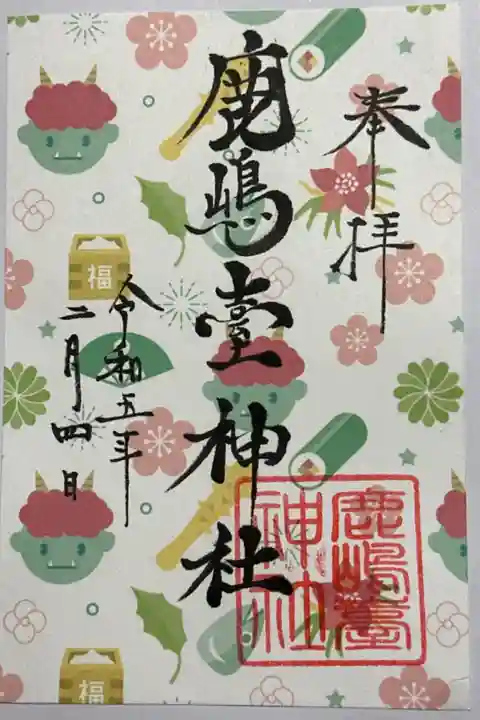 奉拝
鹿嶋臺神社
鹿嶋臺
神社
令和五年
二月四日
福
福